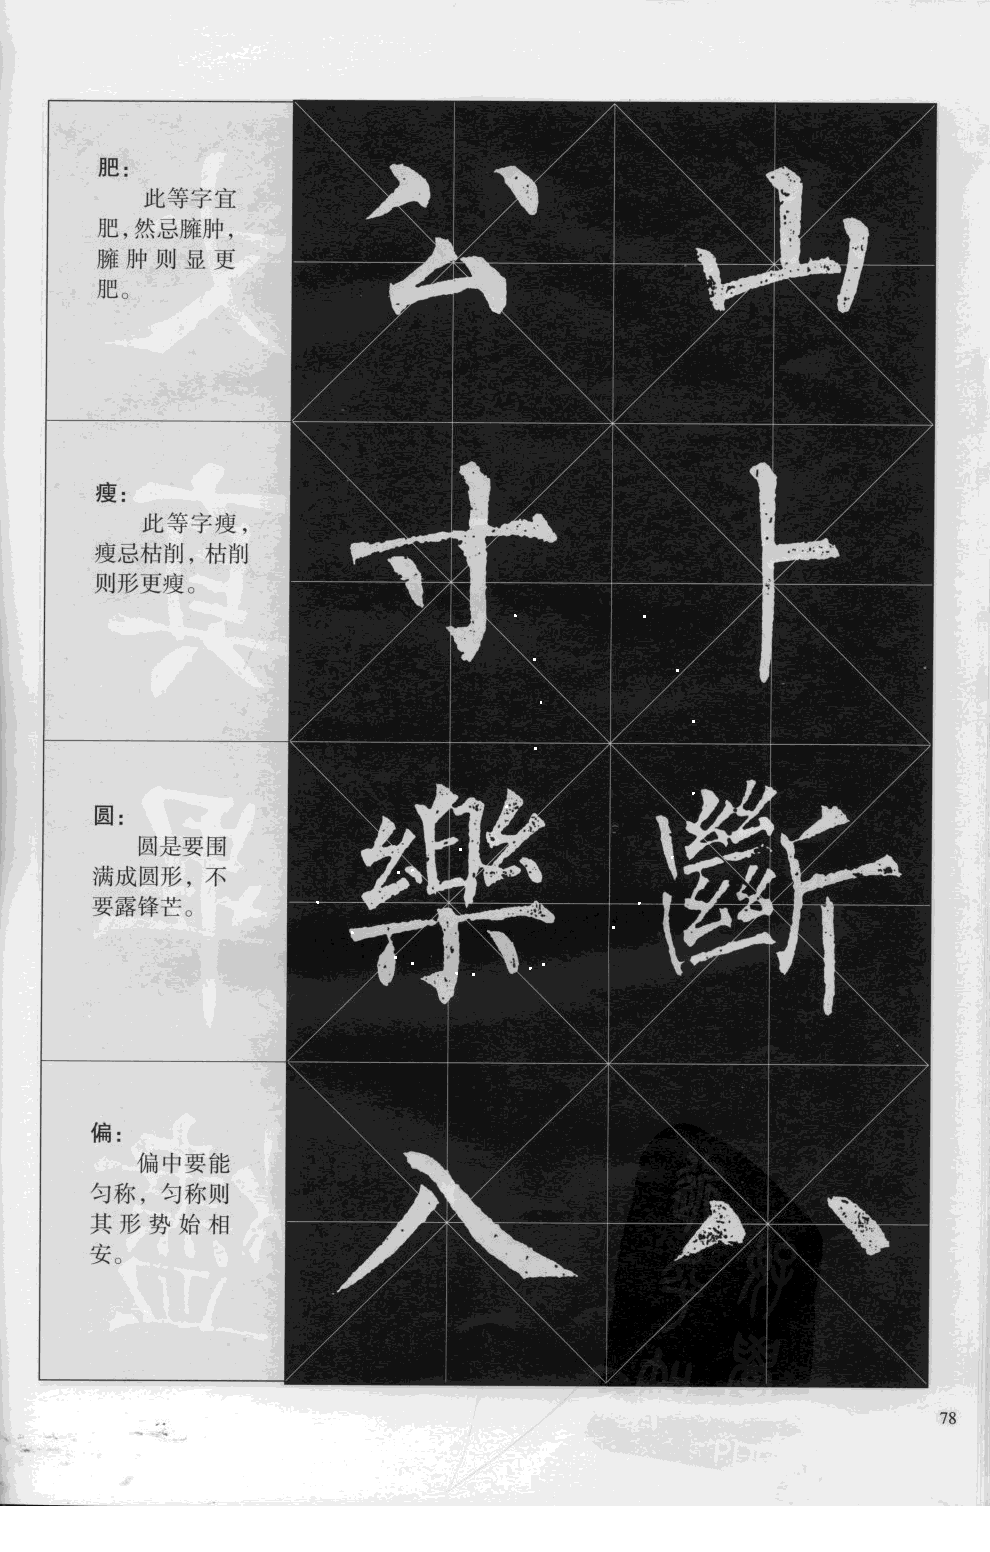 肥：
此等字宜
肥，然忌臃肿，
臃肿则显更
肥。
公 山
瘦：
此等字瘦，
瘦忌枯削，枯削
则形更瘦。
寸 卜
圆：
圆是要围
满成圆形，不
要露锋芒。
樂 斷
偏：
偏中要能
匀称，匀称则
其形势始相
安。
入 八
78